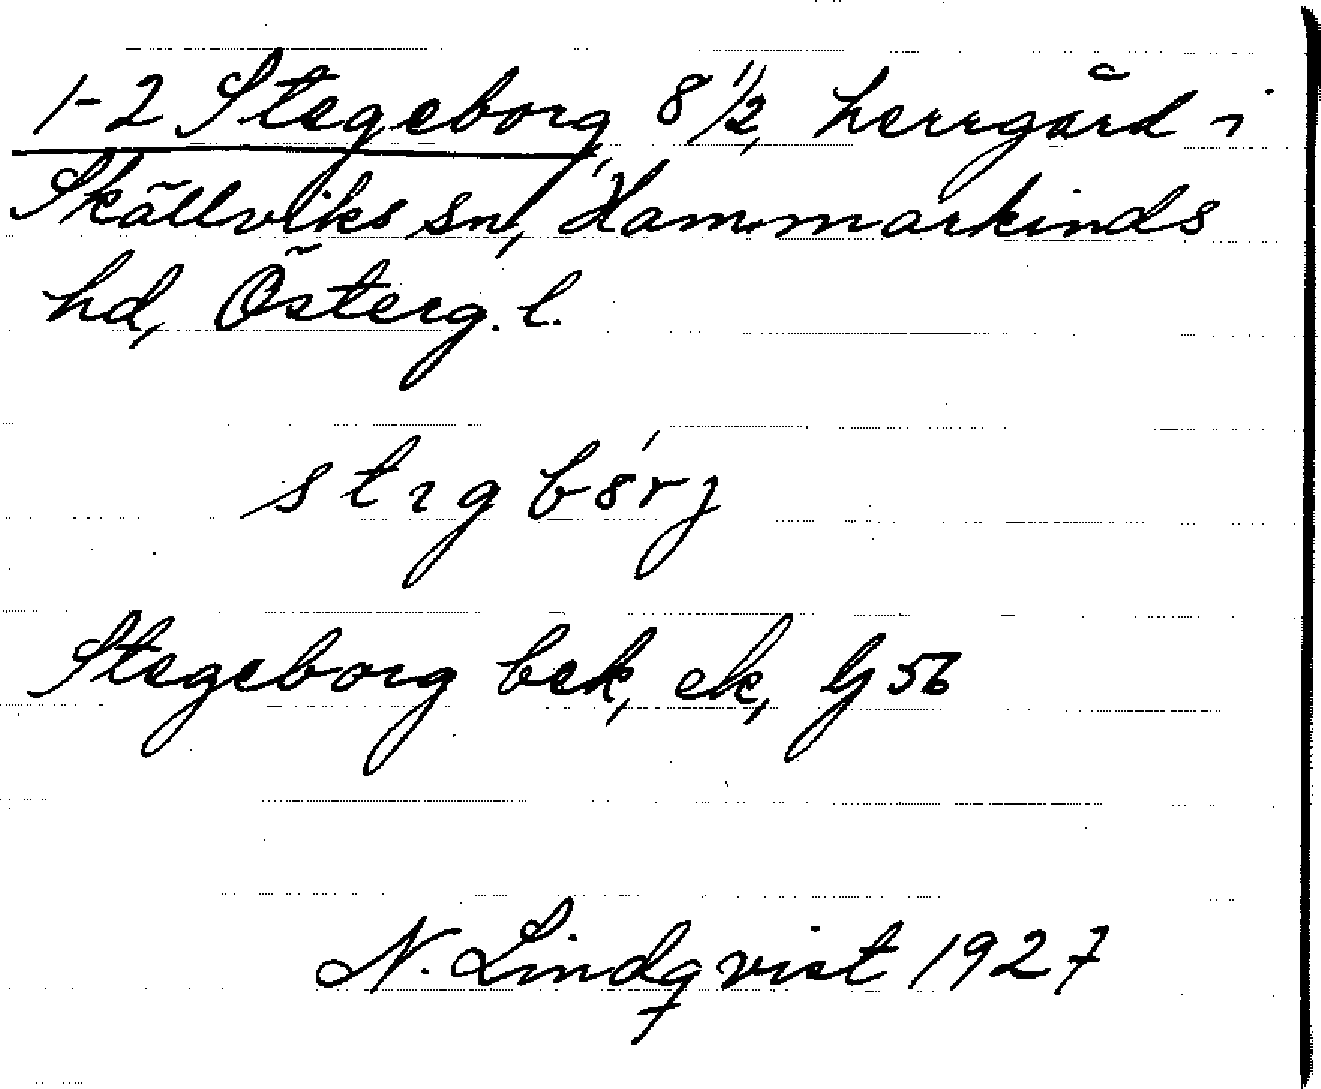 1-2 Stegeborg 8 1/2, herrgård i
Skällviks sn, Hammarkinds
hd, Österg. l.
Stegeborg bek, ek, Gj 56
N. Lindqvist 1927